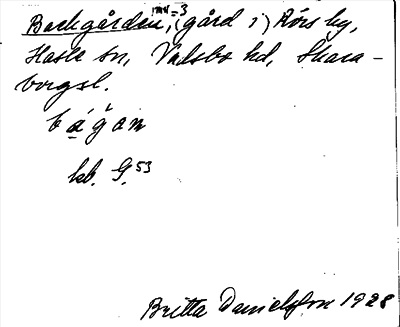 Backgården, (gård i) Rörs by,
sn, Valsbo hd, Skara-
borgsl.
bágàn
kb. 9.53
Britta Danielsson 1928